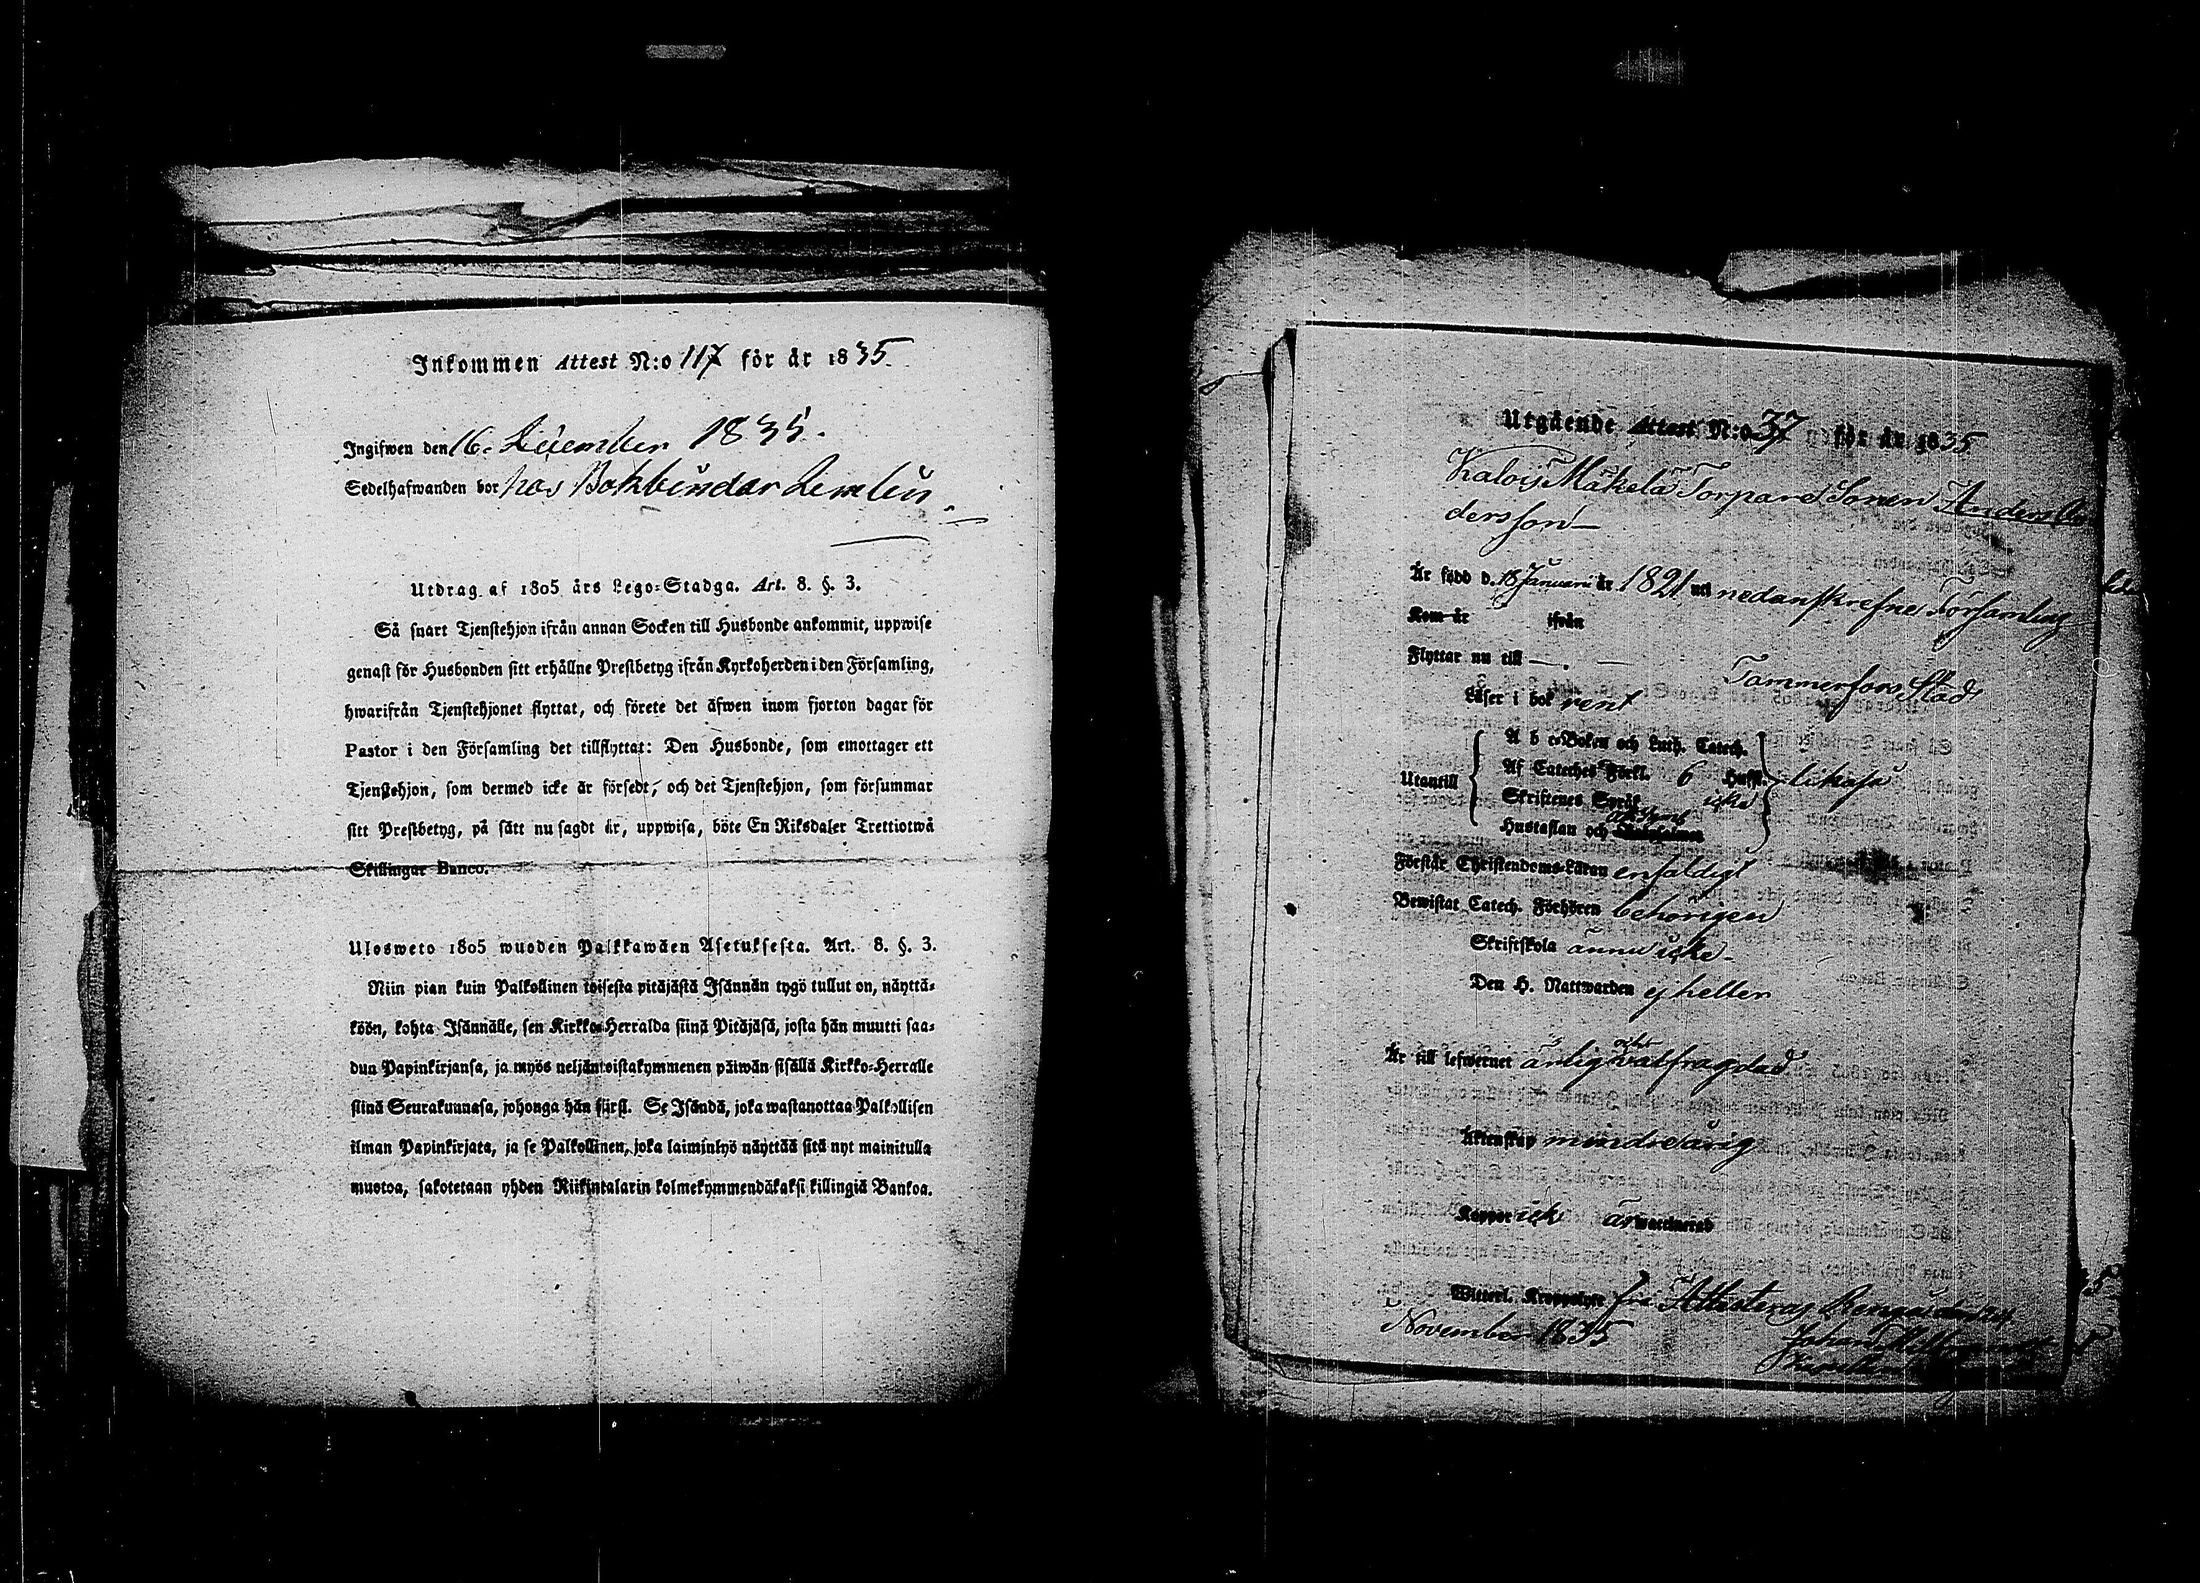 Inkommen Attest N:o 117 för år 1835.
Ingifwen den 16. December 1835.
Sedelhafwanden bor hos Bokbindar Lemlin
Utdrag af 1805 års Lego-Stadga. Art. 8. §. 3.
Så snart Tjenstehjon ifrån annan Socken till Husbonde ankommit, uppwise
genast för Husbonden sitt erhållne Prestbetyg ifrån Kyrkoherden i den Församling,
hwarifrån Tjenstehjonet flyttat, och förete det äfwen inom fjorton dagar för
Pastor i den Församling det tillflyttat: Den Husbonde, som emottager ett
Tjenstehjon, som dermed icke är försedt, och det Tjenstehjon, som försummar
sitt Prestbetyg, på sätt nu sagdt är, uppwisa, böte En Riksdaler Trettiotwå
Skillingar Banco.
Ulosweto 1805 wuoden Palkkawäen Asetuksesta. Art. 8. §. 3.
Niin pian kuin Palkollinen toisesta pitäjästä Isännän tygö tullut on, näyttä-
köön, kohta Isännälle, sen Kirkko-Herralda siinä Pitäjäsä, josta hän muutti saa-
dun Papinkirjansa, ja myös neljäntoistakymmenen päiwän sisällä Kirkko-Herralle
siinä Seurakunnasa, johonga hän siirsi. Se Isändä, joka wastanottaa Palkollisen
ilman Papinkirjata, ja se Palkollinen, joka laiminlyö näyttää sitä nyt mainitulla
muotoa, sakotetaan yhden Riikintalarin kolmekymmendäkaksi killingiä Bankoa.
Utgående Attest N:o 37 för år 1835
Kalois Mäkelä Torpare Sonen Anders An
dersson
Är född d. 18 Januari år 1821 uti nedanskrefne Församling
Kom år ifrån
Flyttar nu till Tammerfors Stad
Läser i bok rent
A b c-Boken och Luth. Catech.
Af Cateches Förkl. 6 Hufst. likaså
Utantill
Skriftenes Språk icke
Hustaflan och
Förstår Christendoms-Läran enfaldigt
Bewistat Catech. Förhören behörigen
Skriftskola ännu icke
Den H. Nattwarden ej heller
Är till lefwernet ärlig och välfrägdad
Äktenskap minderårig
Koppor icke är waccinerad
Widerl. Kroppslyte fri Attesteras
November 1835
Johan